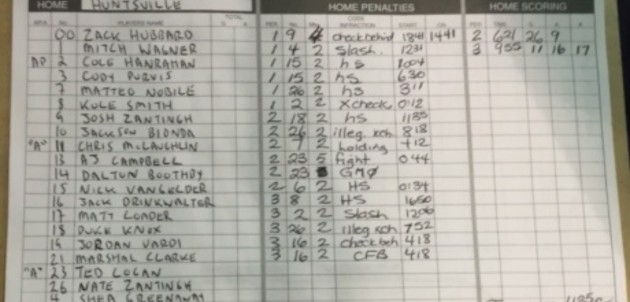 HOME HUNTSVILLE HOME PENALTIES HOME SCORING
No PLAYERS NAME TOTAL G A PER No. INFRACTION START ON PER TIME G A A
00 ZACK HUBBARD 1 9 4 check behind 1841 1441 2 621 26 9
MITCH WAGNER 1 4 2 Slash. 1231 3 955 11 16 17
AP 2 COLE HANRAHAN 1 15 2 hs 1004
3 CODY PURVIS 1 15 2 hs 630
7 MATTEO NOBILE 1 26 2 hs 311
8 KOLE SMITH 1 2 2 Xcheck 0:12
9 JOSH ZANTINGH 2 18 2 hs 1135
10 JACKSON BIONDA 2 26 2 illeg. 818
"A" 11 CHRIS McLAUGHLIN 2 7 2 holding 412
13 AJ CAMPBELL 2 23 5 fight 0:44
14 DALTON BOOTHBY 2 23 GMØ
15 NICK VANGELDER 2 6 2 HS 0:34
16 JACK DRINKWALTER 3 8 2 HS 1650
17 MATT LOADER 3 2 2 Slash 1206
18 KNOX 3 26 2 illeg 752
19 JORDAN VARDY 3 16 2 check beh 418
21 MARSHAL CLARKE 3 16 2 CFB 418
"A" 23 TED LOGAN
26 NATE ZANTINGH
4 SHEA GREENAWAY